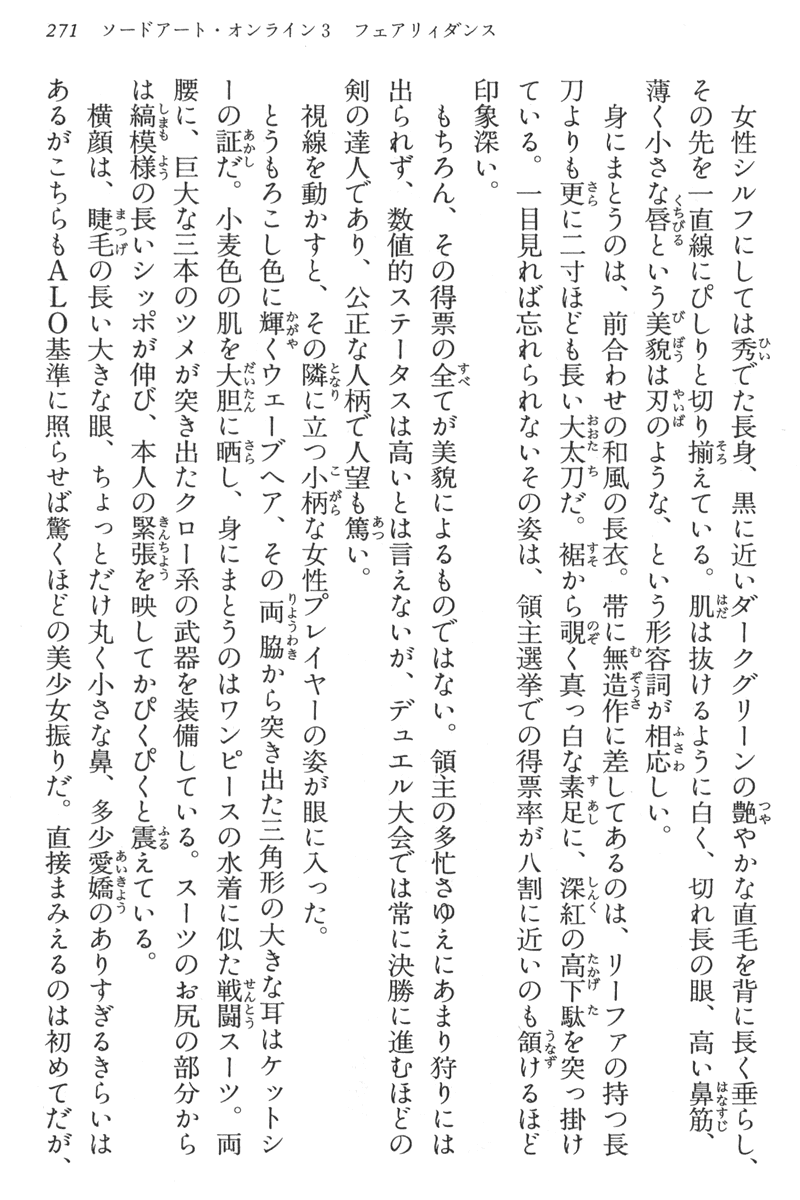 271 ソードアート・オンライン3 フェアリィダンス
女性シルフにしては秀でた長身、黒に近いダークグリーンの艶やかな直毛を背に長く垂らし、
その先を一直線にぴしりと切り揃えている。肌は抜けるように白く、切れ長の眼、高い鼻筋、
薄く小さな唇という美貌は刃のような、という形容詞が相応しい。
身にまとうのは、前合わせの和風の長衣。帯に無造作に差してあるのは、リーファの持つ長
刀よりも更に二寸ほども長い大太刀だ。裾から覗く真っ白な素足に、深紅の高下駄を突っ掛け
ている。一目見れば忘れられないその姿は、領主選挙での得票率が八割に近いのも頷けるほど
印象深い。
もちろん、その得票の全てが美貌によるものではない。領主の多忙さゆえにあまり狩りには
出られず、数値的ステータスは高いとは言えないが、デュエル大会では常に決勝に進むほどの
剣の達人であり、公正な人柄で人望も篤い。
視線を動かすと、その隣に立つ小柄な女性プレイヤーの姿が眼に入った。
とうもろこし色に輝くウェーブヘア、その両脇から突き出た三角形の大きな耳はケットシ
ーの証だ。小麦色の肌を大胆に晒し、身にまとうのはワンピースの水着に似た戦闘スーツ。両
腰に、巨大な三本のツメが突き出たクロー系の武器を装備している。スーツのお尻の部分から
は縞模様の長いシッポが伸び、本人の緊張を映してかぴくぴくと震えている。
横顔は、睫毛の長い大きな眼、ちょっとだけ丸く小さな鼻、多少愛嬌のありすぎるきらいは
あるがこちらもALO基準に照らせば驚くほどの美少女振りだ。直接まみえるのは初めてだが、